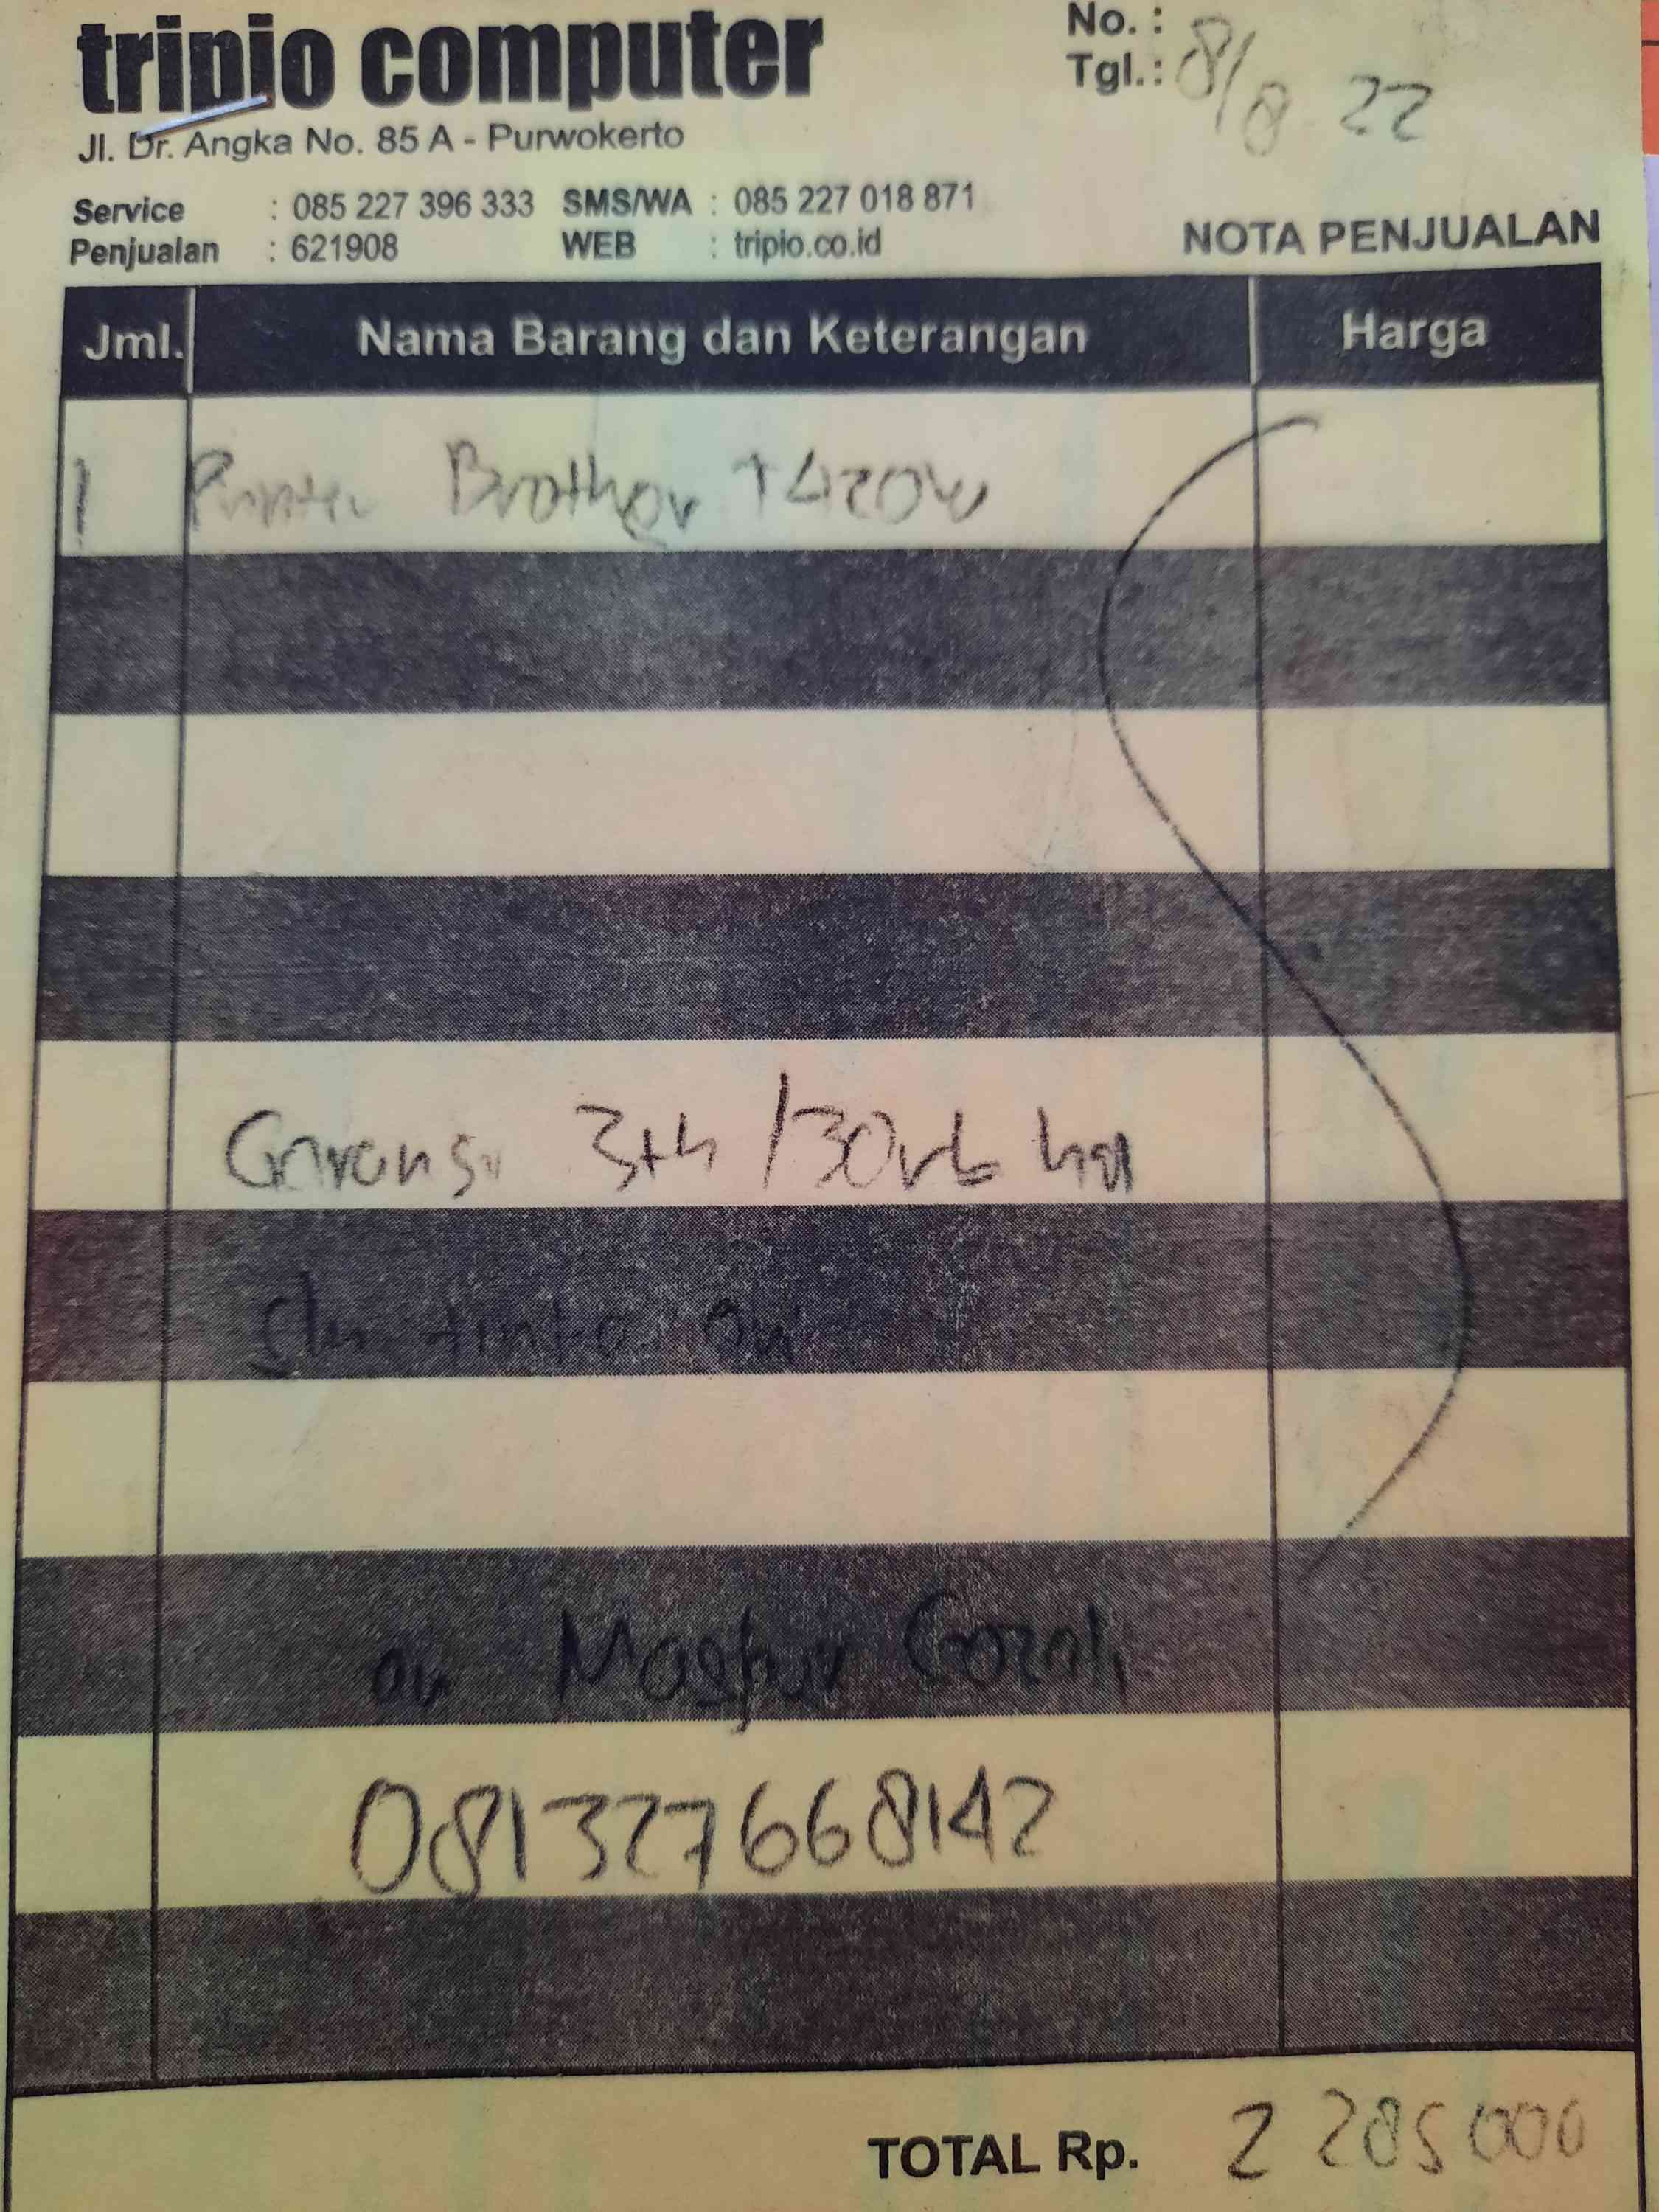 tripio computer
No. :
Tgl. : 8/8 22
Jl. Dr. Angka No. 85 A - Purwokerto
Service : 085 227 396 333 SMS/WA : 085 227 018 871
Penjualan : 621908 WEB : tripio.co.id
NOTA PENJUALAN
Jml. Nama Barang dan Keterangan Harga
1 Printer Brother T420W
Garansi 3th /30rb hal
tinta
an Masfur Gozali
081327668142
TOTAL Rp. 2 285 000